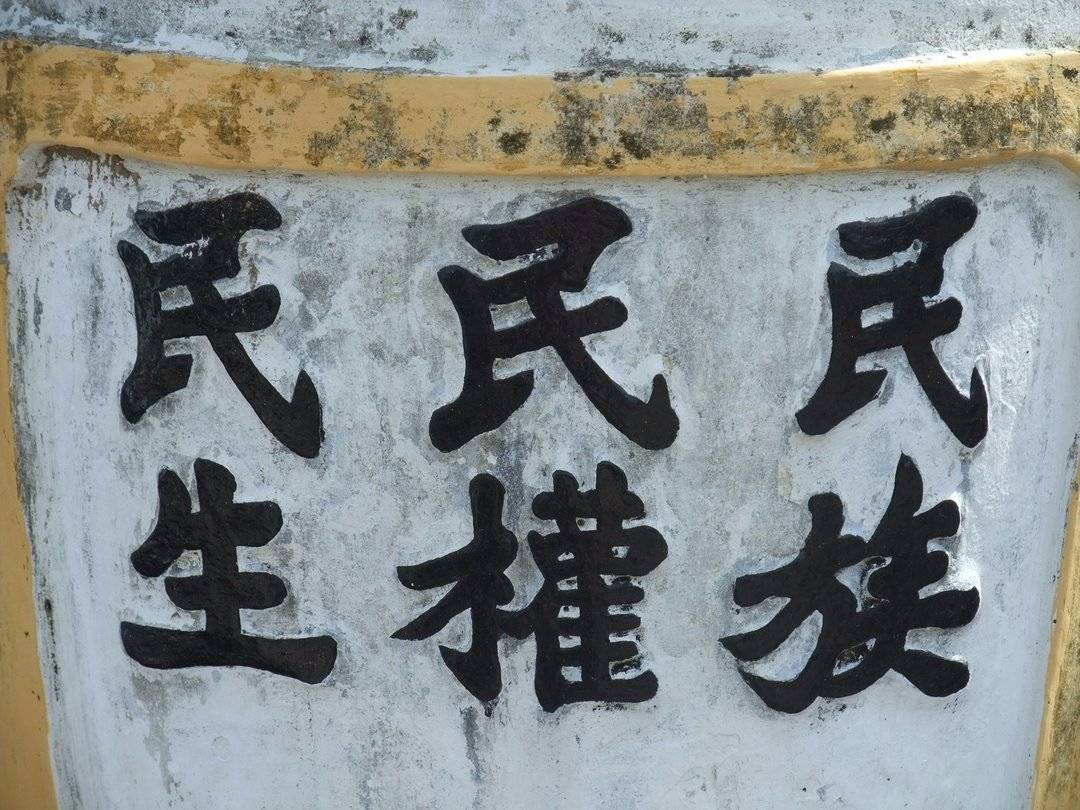 民族
民權
民生